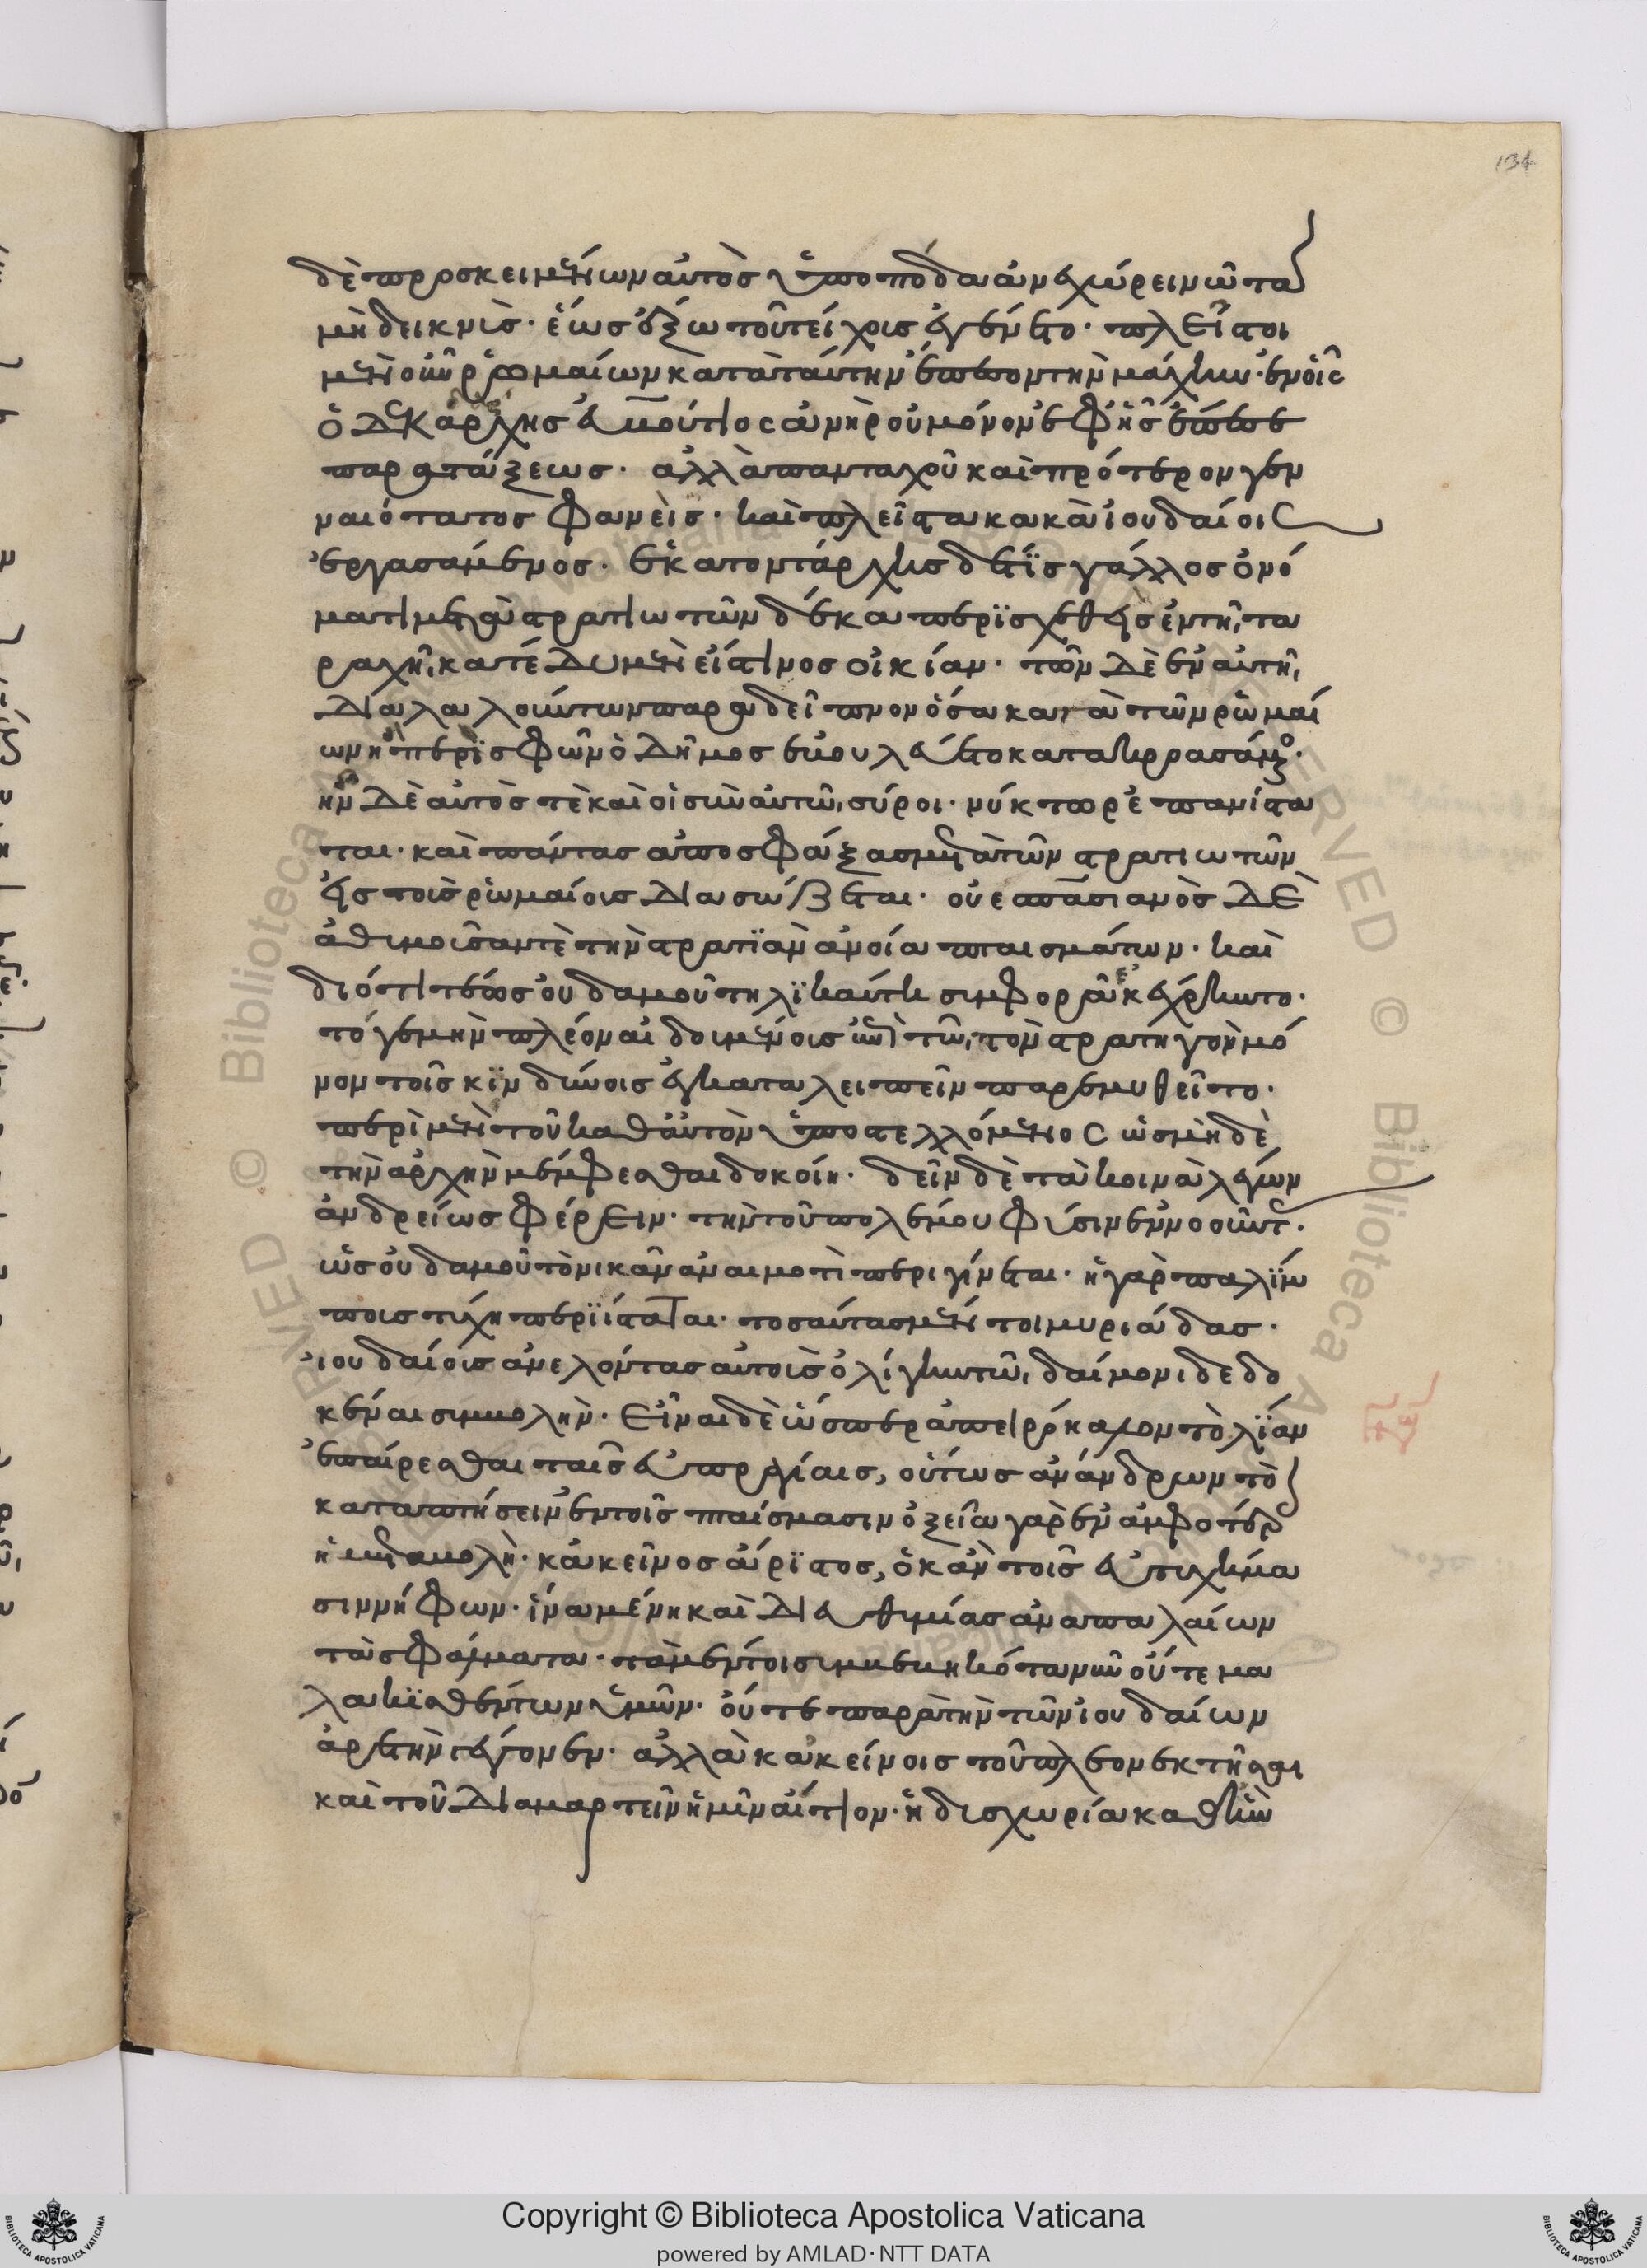 134
δὲ προσκειμένων αὐτὸς ὑπὸ πόδα ἀνεχώρει νῶτα
μὴ δεικνύς· ἕως ἔξω τοῦ τείχους ἐγένετο· πλεῖστοι
μὲν οὖν ῥωμαίων κατὰ ταύτην ἔπεσον τὴν μάχην· ἐν οἷς
ὁ δεκάρχης ἐμούτιος ἀνὴρ οὐ μόνον ἐφ ἧς ἔπεσε
παρατάξεως· ἀλλὰ πανταχοῦ καὶ πρότερον γεν
ναιότατος φανείς· καὶ πλεῖστα κακὰ ἰουδαίοις
ἐργασάμενος· ἑκατοντάρχης δέ τις γάλλος ὀνό
ματι μετὰ στρατιωτῶν δέκα περισχεθεὶς ἐν τῆ, τα
ραχῆ, κατέδυ μὲν εἴστινος οἰκίαν· τῶν δὲ ἐν αὐτῆ,
διαλαλούντων παρὰ δεῖπνον ὅσα κατὰ τῶν ῥωμαί
ων ἢ περὶ σφῶν ὁ δῆμος ἐβουλεύετο κατακροασάμενος·
ἦν δὲ αὐτός τε καὶ οἱ σὺν αὐτῶ, σύροι· νύκτωρ ἐπανίστα
ται· καὶ πάντας ἀποσφάξας μετὰ τῶν στρατιωτῶν
εἰς τοὺς ῥωμαίους διασώζεται· οὐεσπασιανὸς δὲ
ἀθυμοῦσάν τε τὴν στρατιὰν ἀνοία πταισμάτων· καὶ
διότι τέως οὐδαμοῦ τηλικαύτη συμφορᾶ ἐκέχρηντο·
τό γε μὴν πλέον αἰδουμένους ἐπὶ τῶ, τὸν στρατηγὸν μό
νον τοῖς κινδύνοις ἐγκαταλειπεῖν παρεμυθεῖτο·
περὶ μὲν τοῦ καθ αὑτὸν ὑποστελλόμενος ὡς μὴ δὲ
τὴν ἀρχὴν μέμφεσθαι δοκοίη· δεῖν δὲ τὰ κοινὰ λέγων
ἀνδρείως φέρειν· τὴν τοῦ πολέμου φύσιν ἐννοοῦντας·
ὡς οὐδαμοῦ τὸ νικᾶν ἀναιμοτὶ περιγίνεται· ἡ γὰρ παλίμ
πους τύχη περιίσταται· τοσαύτας μέν τοι μυριάδας·
ἰουδαίοις ἀνελόντας αὐτοὺς ὀλίγην τῶ, δαίμονι δεδο
κέναι συμβολήν· εἶναι δὲ ὥσπερ ἀπειρόκαλον τὸ λίαν
ἐπαίρεσθαι ταῖς εὐπραγίαις, οὕτως ἀνάνδρων τὸ
καταπτήσειν ἐν τοῖς πταίσμασιν ὀξεῖα γὰρ ἐν ἀμφοτέρ
ἡ μεταβολή· κἀκεῖνος ἄριστος, ὁ κἂν τοῖς εὐτυχήμα
σι νήφων· ἵνα μένη καὶ δι εὐθυμίας ἀναπαλαίων
τὰ σφάλματα· τὰ μέντοι συμβεβηκότα νῦν οὔτε μα
λακισθέντων ἡμῶν· οὔτε παρὰ τὴν τῶν ἰουδαίων
ἀρετὴν γέγονεν· ἀλλὰ κἀκείνοις τοῦ πλεονεκτῆσαι
καὶ τοῦ διαμαρτεῖν ἡμῖν αἴτιον· ἡ δυσχωρία καθ ἣν
Copyright © Biblioteca Apostolica Vaticana
powered by AMLAD·NTT DATA